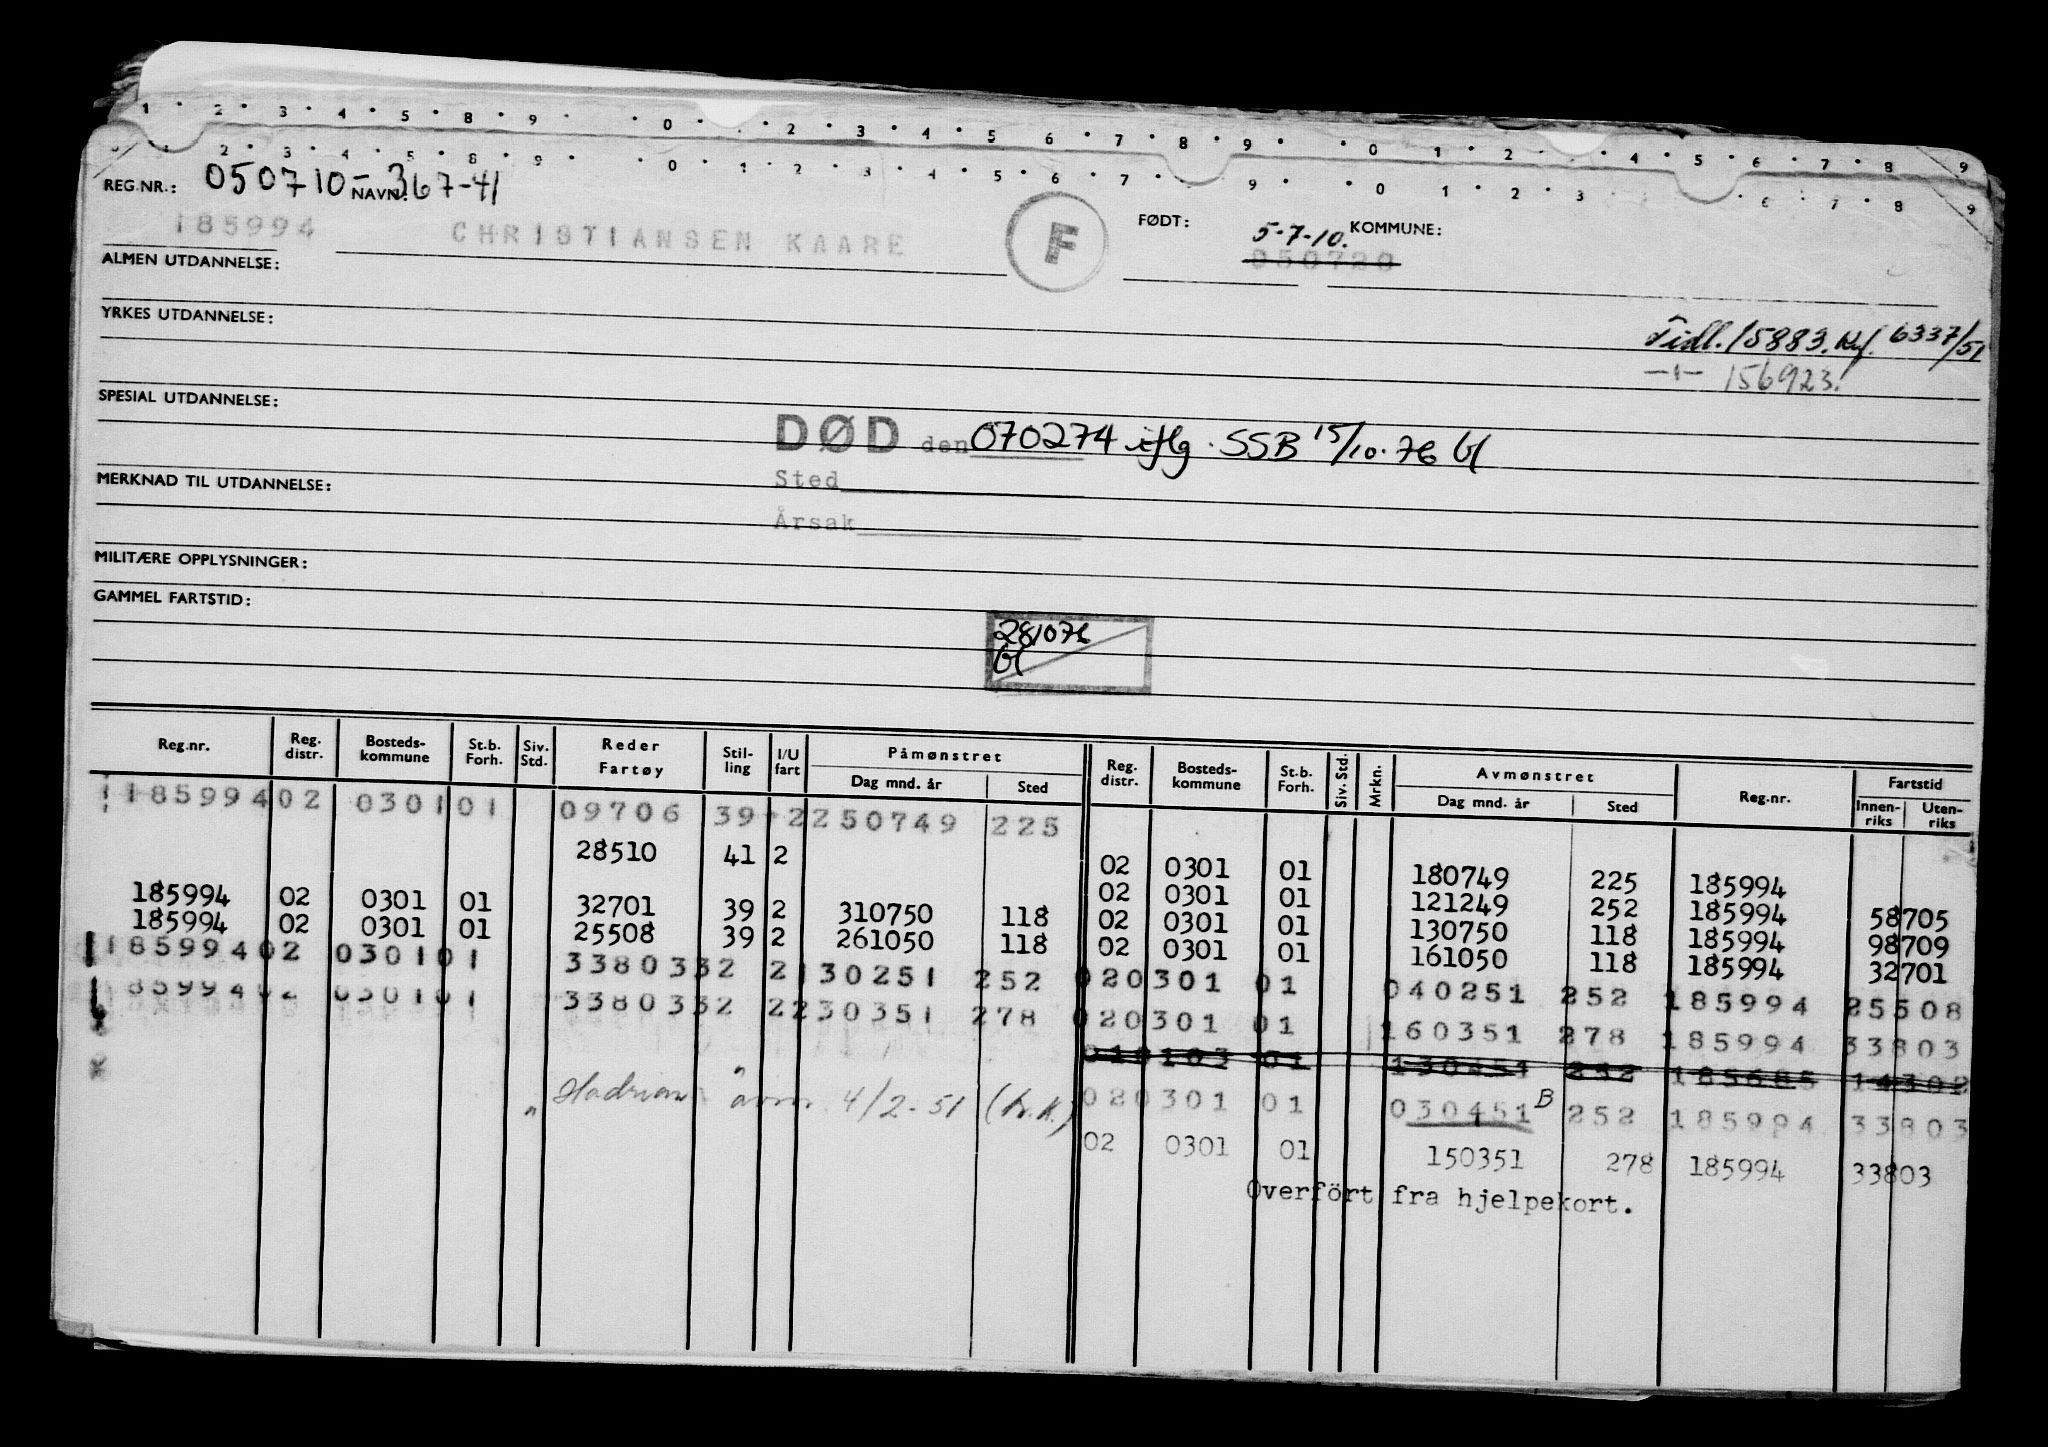 1 · 2 · 3 · 4 · 5 · 8 · 9 · 0 · · 2 · 3 · 4 · 5 6 · 7 · 8 · 9 · 0 1 · 2 · · 4 · 5 · 6 · 7 · 8 9
2 · 3 · 4 · 5 · 8 · 9 · 0 · 1 · 2 · 3 · 4 · 5 · 6 · 7 · 9 · 0 1 · 2 · 3 · 6 · 7 · 8 9
REG.NR.: 050710-367-41 NAVN:
185994 CHRISTIANSEN KAARE F FØDT: 5-7-10. KOMMUNE:
050720
ALMEN UTDANNELSE:
YRKES UTDANNELSE:
Tidl. 15883. Kf. 6337/51
-"- 156923.
SPESIAL UTDANNELSE:
DØD den 070274 iflg. SSB 15/10-76 bl
Sted
MERKNAD TIL UTDANNELSE:
Årsak
MILITÆRE OPPLYSNINGER:
GAMMEL FARTSTID:
281076
bl
Reg.nr. Reg. distr. Bosteds-kommune St.b. Forh. Siv. Std. Reder Fartøy Stil-ling I/U fart Påmønstret Dag mnd. år Sted Reg. distr. Bosteds-kommune St.b. Forh. Siv. Std. Mrkn. Avmønstret Dag mnd. år Sted Reg.nr. Fartstid Innen-riks Uten-riks
185994 02 0301 01 09706 39 2 250749 225
28510 41 2 02 0301 01 180749 225 185994
02 0301 01 121249 252 185994 58705
185994 02 0301 01 32701 39 2 310750 118 02 0301 01 130750 118 185994 98709
185994 02 0301 01 25508 39 2 261050 118 02 0301 01 161050 118 185994 32701
185994 02 0301 01 33803 32 2 130251 252 02 0301 01 040251 252 185994 25508
85994 02 0301 01 33803 32 2 230351 278 02 0301 01 160351 278 185994 33803
01 0103 01 130451 252 185685 14302
" Hadrian avm. 4/2-51 (h.k.) 02 0301 01 030451 B 252 185994 33803
02 0301 01 150351 278 185994 33803
Overfört fra hjelpekort.